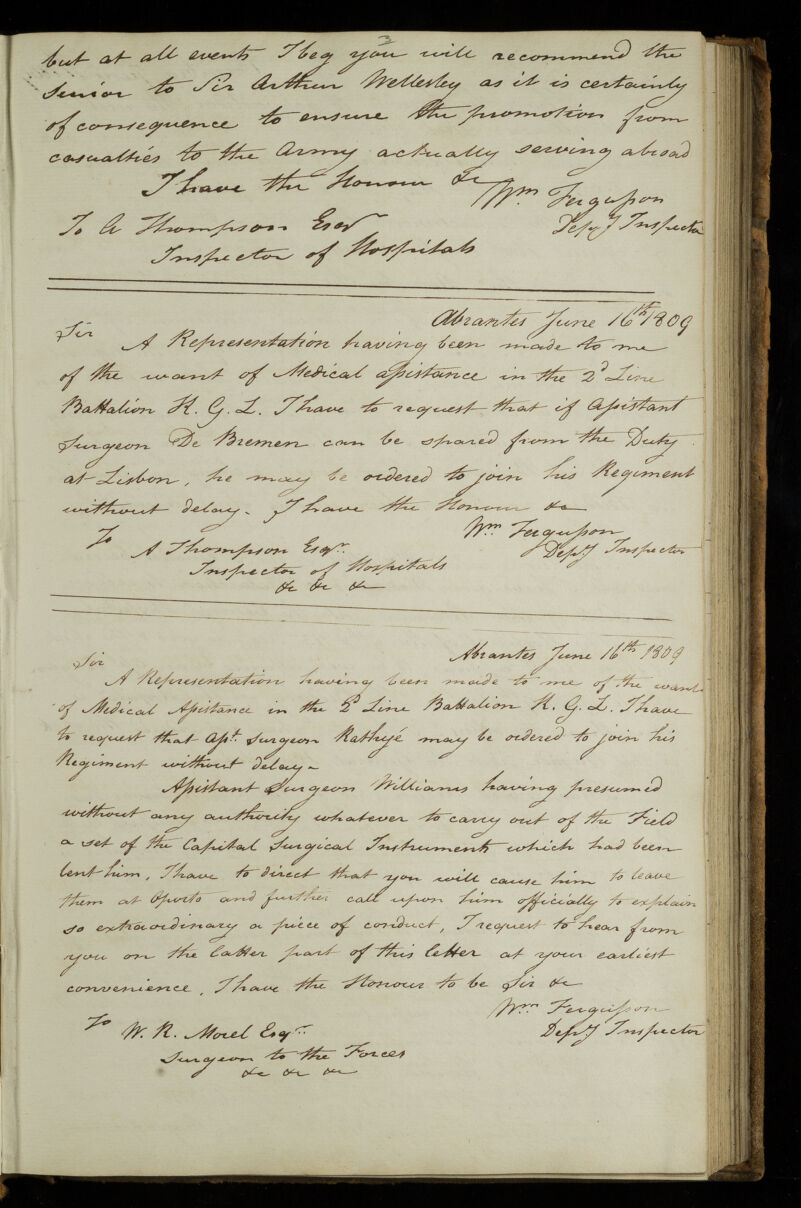 but at all events I beg you will recommend the
Senior to Sir Arthur Wellesley as it is certainly
of consequence to ensure the promotion from
casualties to the Army actually serving abroad
I have the Honour &c
Wm Fergusson
To A Thompson Esqr
Depy Inspector
Inspector of Hospitals
Abrantes June 16th 1809
Sir
A Representation having been made to me
of the want of Medical assistance in the 2d Line
Battalion K. G. L. I have to request that if Assistant
Surgeon De Bremen can be spared from the Duty
at Lisbon, he may be ordered to join his Regiment
without delay. I have the Honour &c
Wm Fergusson
To
A Thompson Esqr
Depy Inspector
Inspector of Hospitals
&c &c &c
Abrantes June 16th 1809
Sir
A Representation having been made to me of the want
of Medical Assistance in the 2d Line Battalion K. G. L. I have
to request that Asst. Surgeon Rathyé may be ordered to join his
Regiment without delay -
Assistant Surgeon Williams having presumed
without any authority whatever to carry out of the Field
a set of the Capital Surgical Instruments which had been
lent him, I have to direct that you will cause him to leave
them at Oporto and further call upon him officially to explain
so extraordinary a piece of conduct, I request to hear from
you on the latter part of this letter at your earliest
convenience, I have the Honour to be Sir &c
Wm Fergusson
To
W. R. Morel Esqr.
Depy Inspector
Surgeon to the Forces
&c &c &c